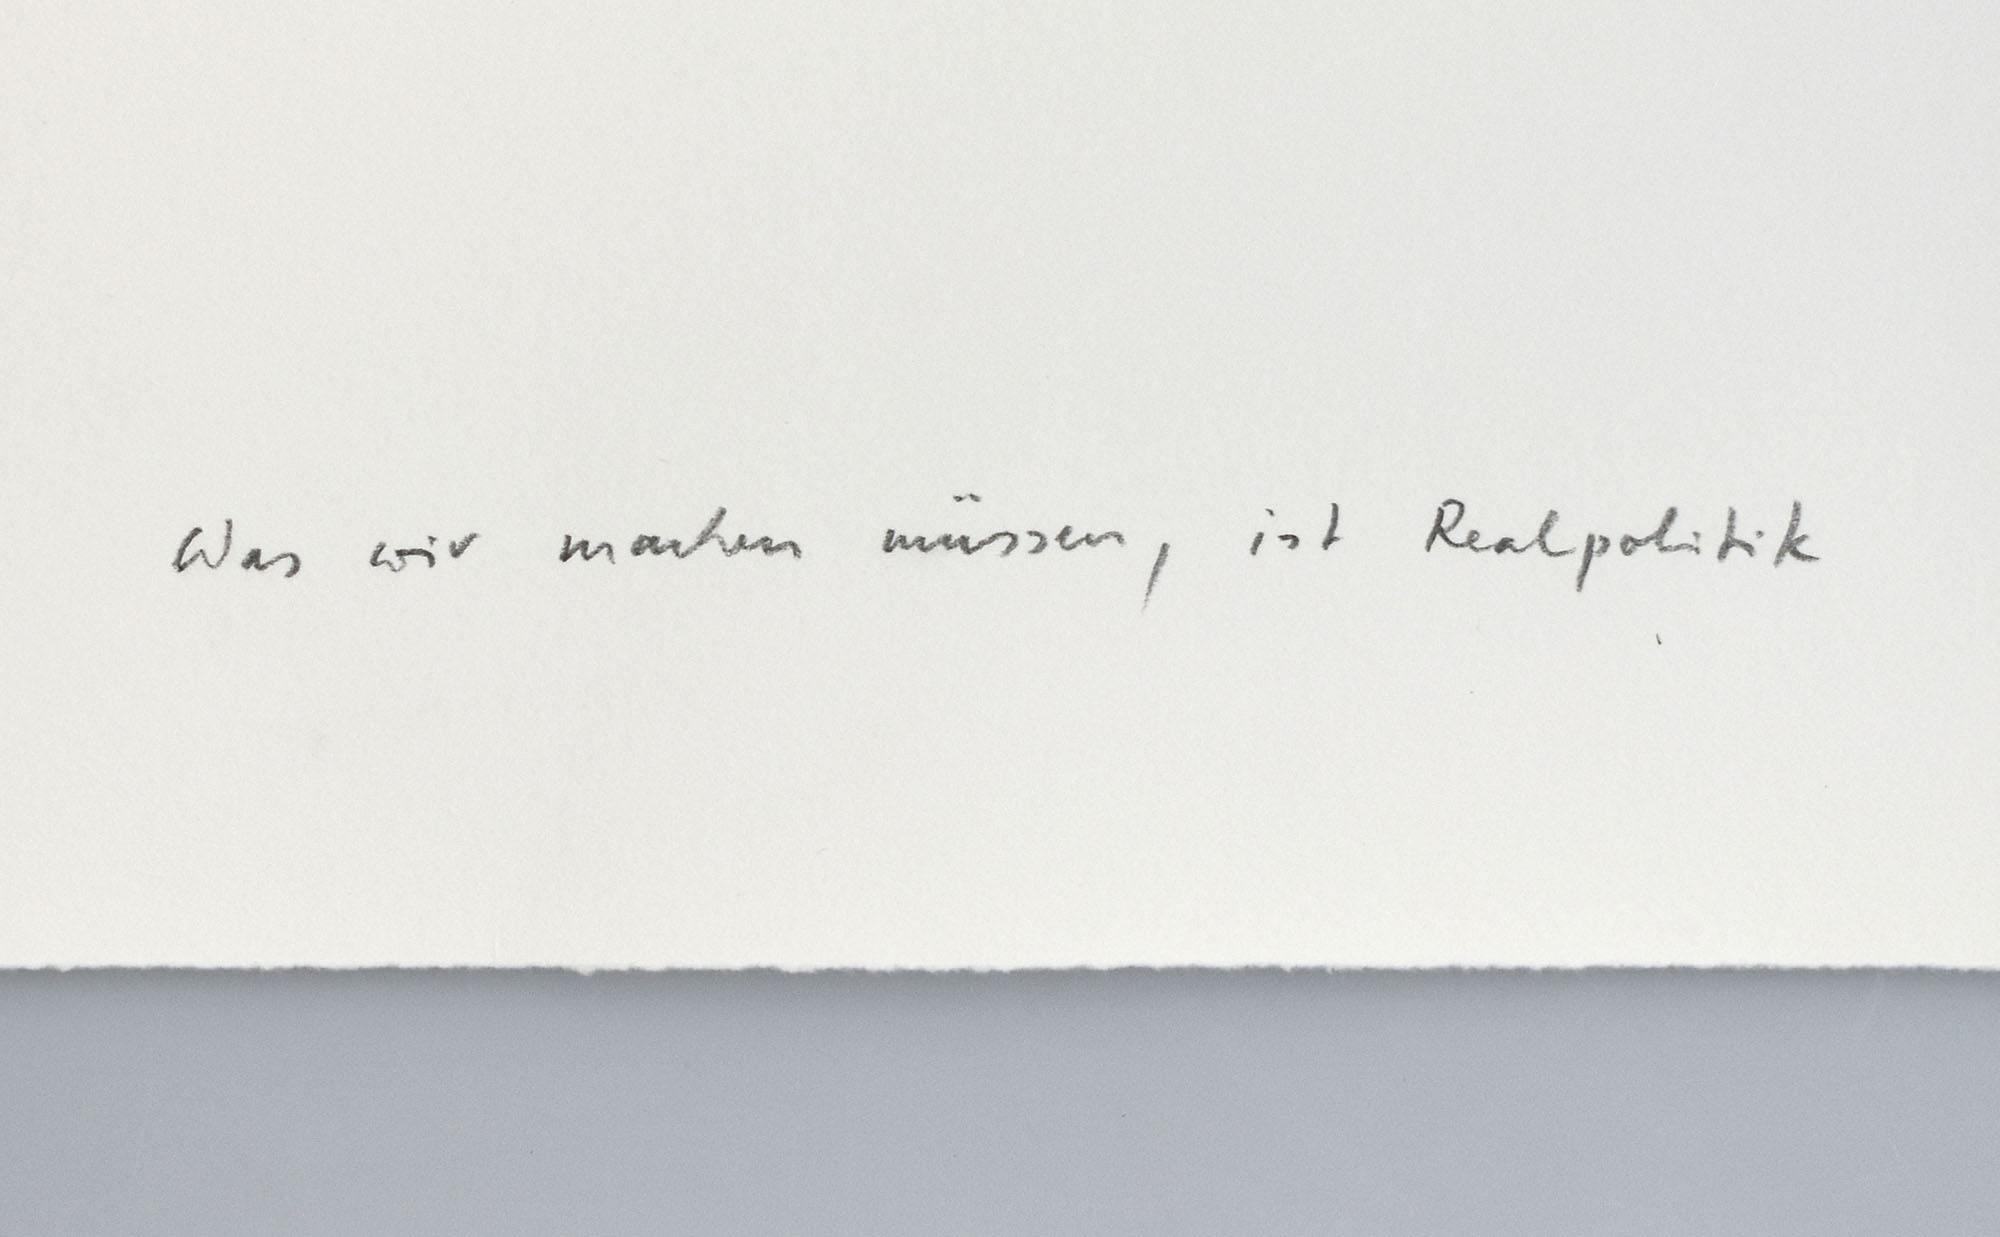 Was wir machen müssen, ist Realpolitik